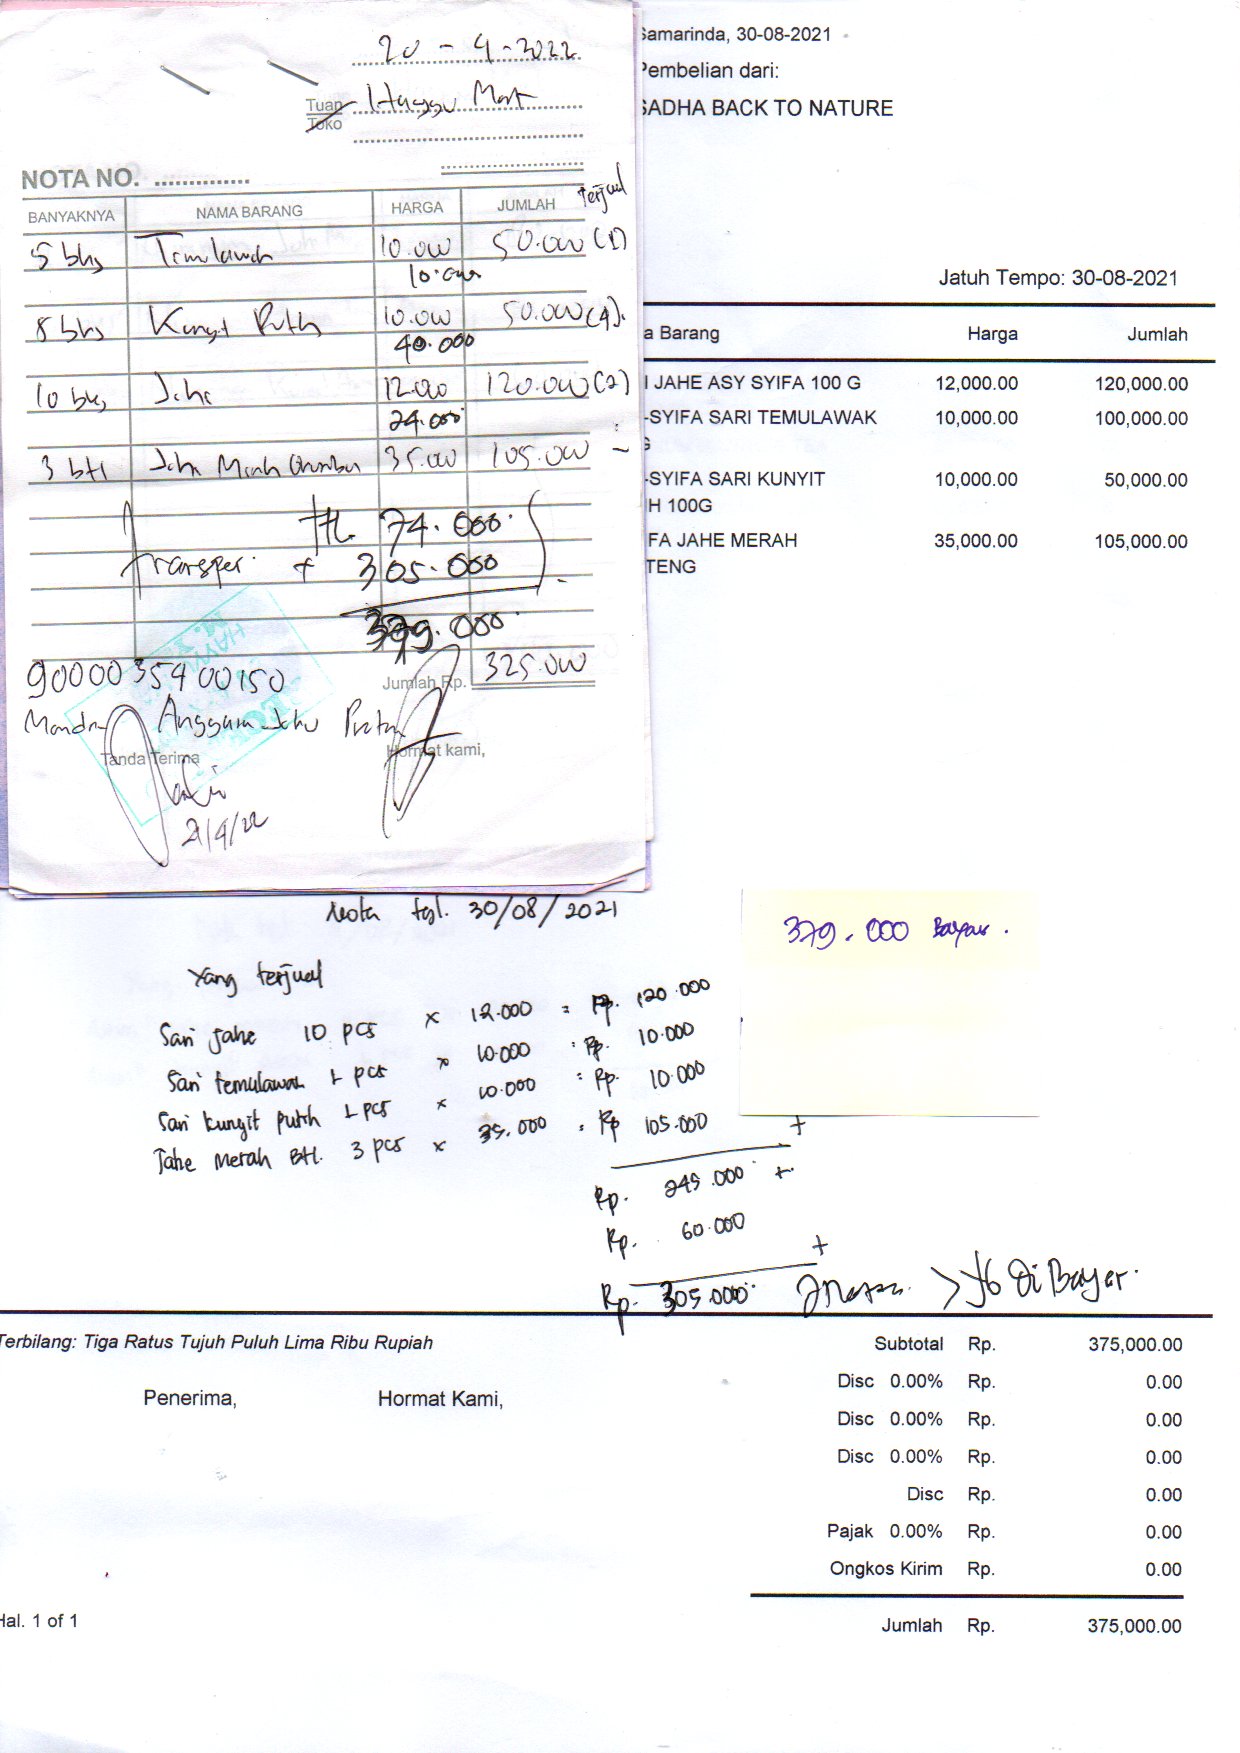 20 - 4 - 2022
Tuan
Toko
NOTA NO. ..............
BANYAKNYA NAMA BARANG HARGA JUMLAH terjual
5 bks Temulawak 10.000 50.000 (1)
10.000
8 bks Kunyit Putih 10.000 50.000 (4).
40.000
10 bks Jahe 12.000 120.000 (2)
24.000
3 btl Jahe Merah 35.000 105.000 -
Ttl. 74.000
transfer. + 305.000
379.000
Jumlah Rp. 325.000
9000035400150
Mandiri
Tanda Terima Hormat kami,
21/4/22
Samarinda, 30-08-2021
Pembelian dari:
SADHA BACK TO NATURE
Jatuh Tempo: 30-08-2021
a Barang Harga Jumlah
I JAHE ASY SYIFA 100 G 12,000.00 120,000.00
-SYIFA SARI TEMULAWAK 10,000.00 100,000.00
G
-SYIFA SARI KUNYIT 10,000.00 50,000.00
H 100G
FA JAHE MERAH 35,000.00 105,000.00
TENG
Nota tgl. 30/08/2021
379.000 Bayar.
Yang terjual
Sari Jahe 10 pcs x 12.000 = Rp. 120.000
Sari temulawak 1 pcs x 10.000 = Rp. 10.000
Sari kunyit putih 1 pcs x 10.000 = Rp. 10.000
Jahe Merah Btl. 3 pcs x 35.000 = Rp 105.000 +
Rp. 245.000 +
Rp. 60.000
+
Rp. 305.000 > yg Di Bayar.
Terbilang: Tiga Ratus Tujuh Puluh Lima Ribu Rupiah
Penerima, Hormat Kami,
Subtotal Rp. 375,000.00
Disc 0.00% Rp. 0.00
Disc 0.00% Rp. 0.00
Disc 0.00% Rp. 0.00
Disc Rp. 0.00
Pajak 0.00% Rp. 0.00
Ongkos Kirim Rp. 0.00
Jumlah Rp. 375,000.00
Hal. 1 of 1